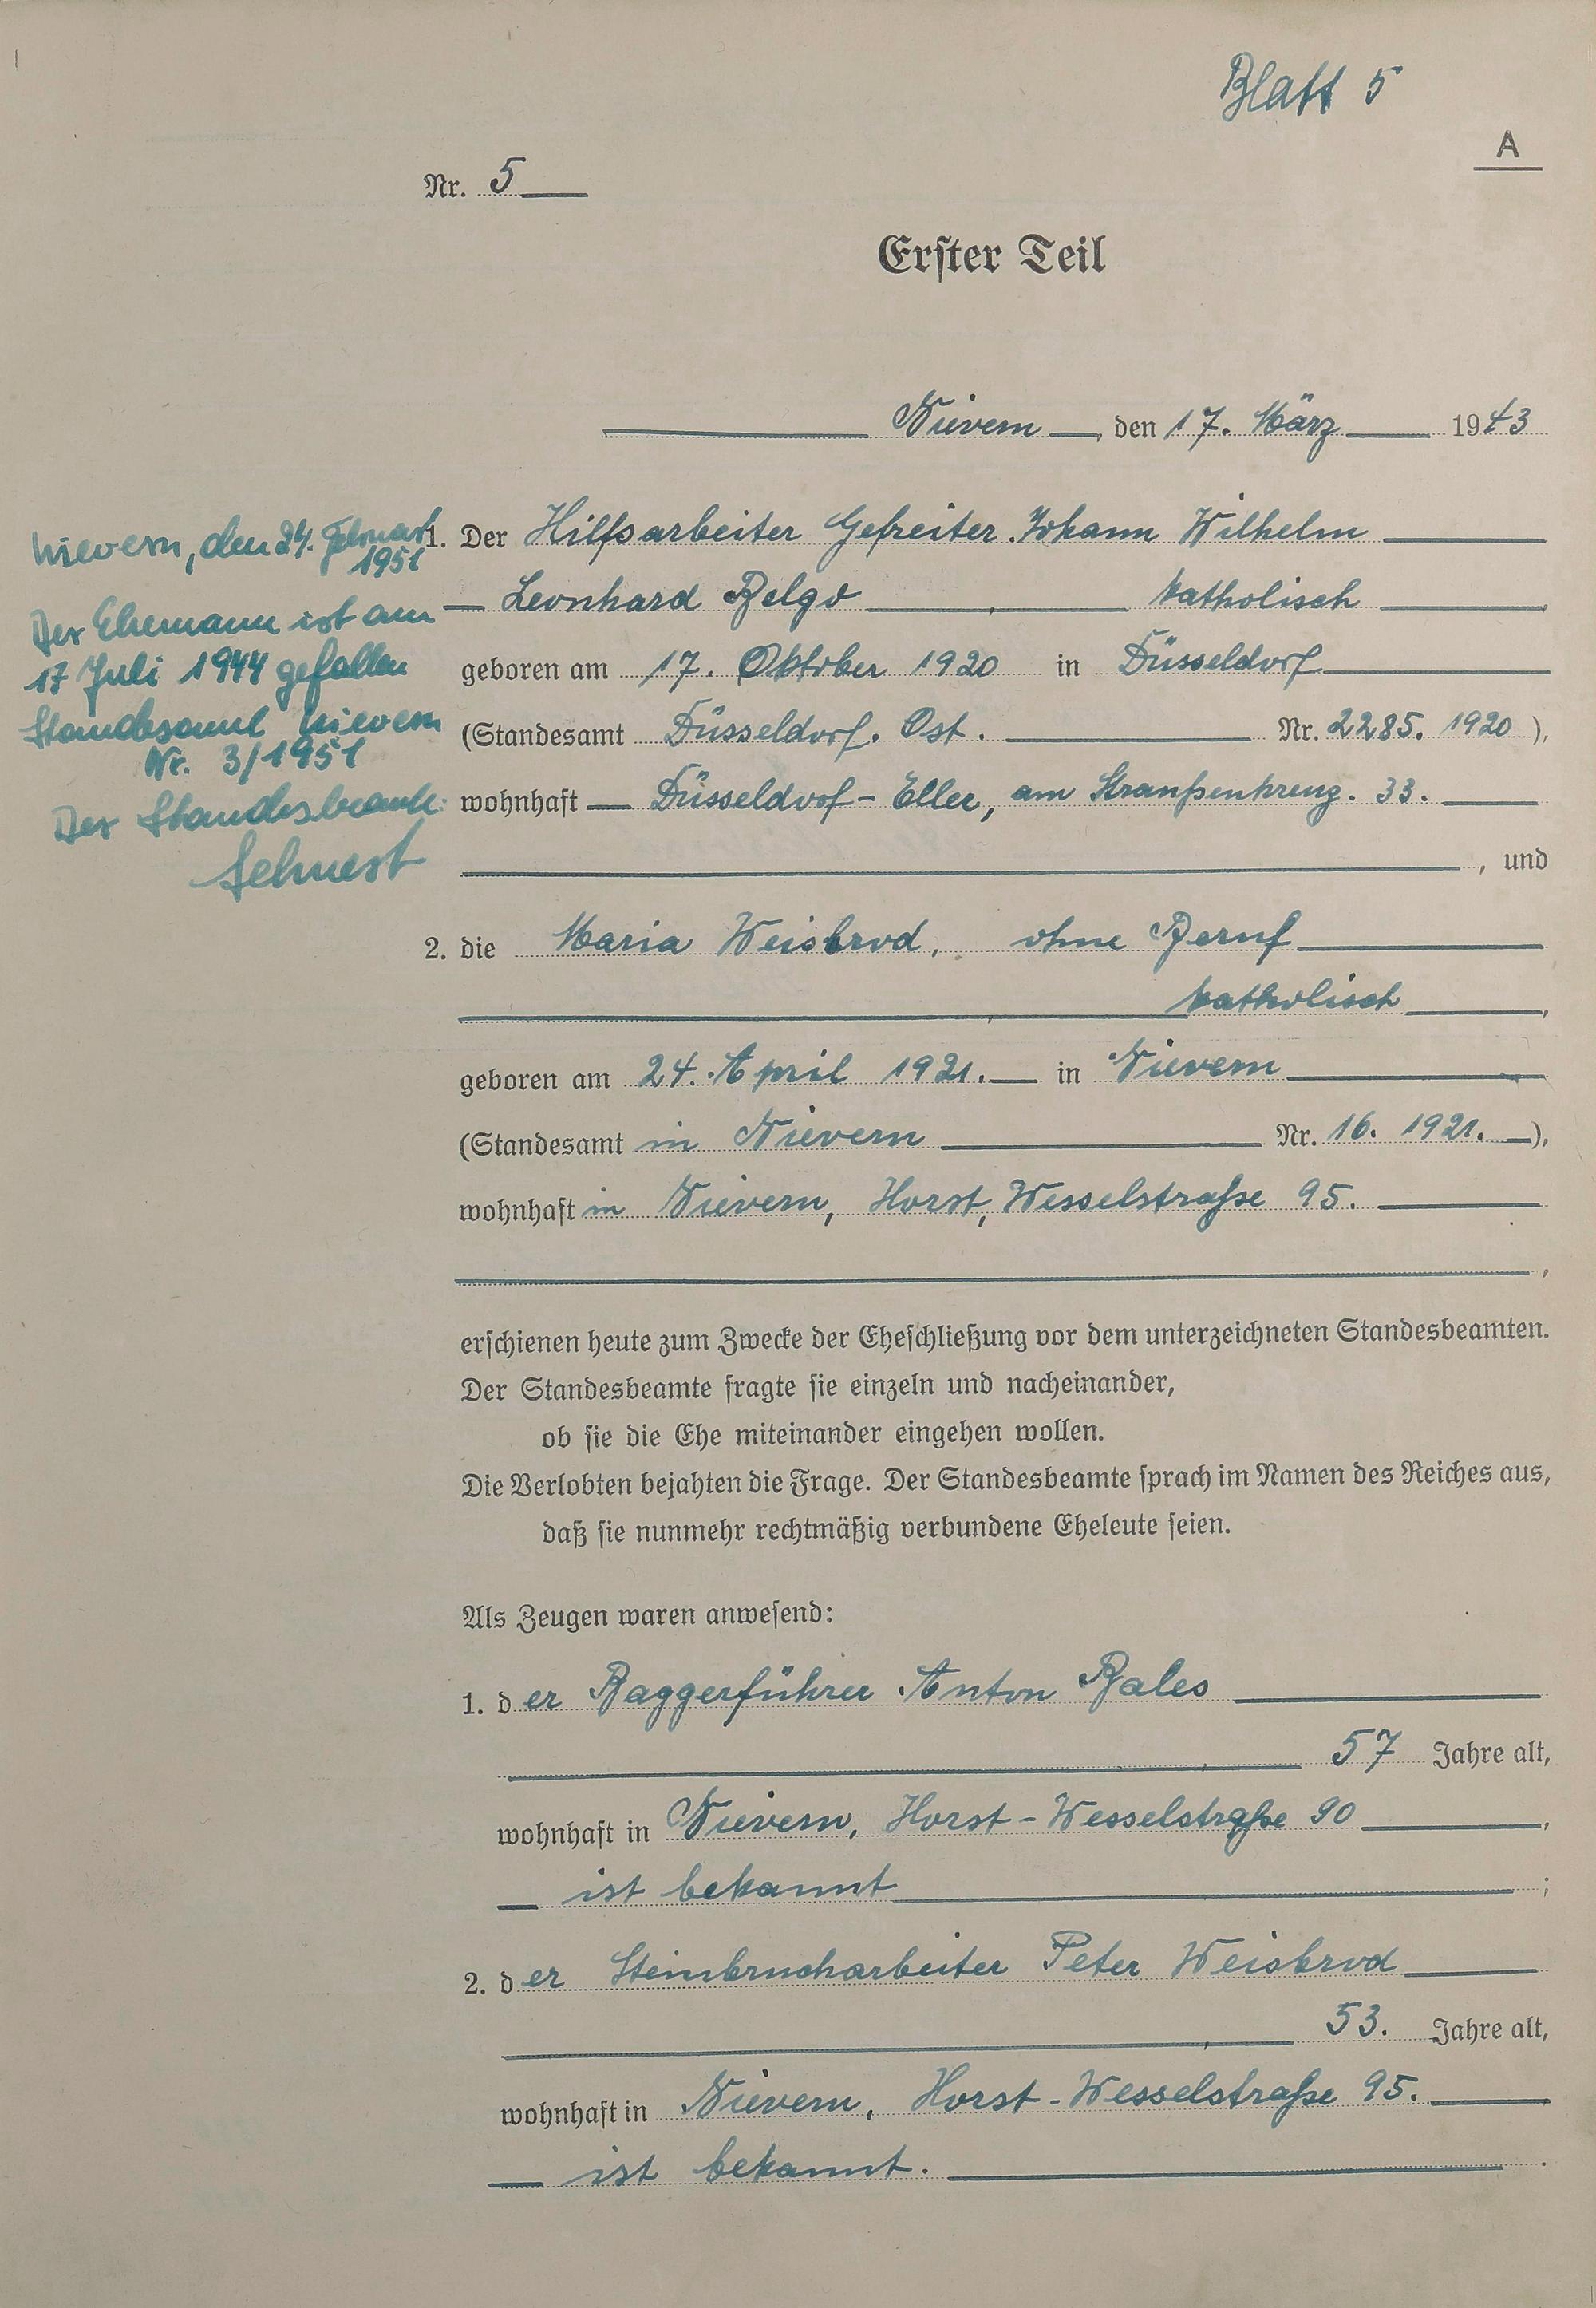 Blatt 5
A
Nr. 5
Erster Teil
Nievern, den 17. März 1943
1. Der Hilfsarbeiter Gefreiter Johann Wilhelm
Leonhard Belgo, katholisch,
geboren am 17. Oktober 1920 in Düsseldorf
(Standesamt Düsseldorf. Ost. Nr. 2285. 1920),
wohnhaft Düsseldorf-Eller, am Straußenkreuz. 33.
, und
Nievern, den 24. Februar
1951
Der Ehemann ist am
17 Juli 1944 gefallen
Standesamt Nievern
Nr. 3/1951
Der Standesbeamte:
2. die Maria Weisbrod, ohne Beruf
katholisch,
geboren am 24. April 1921. in Nievern
(Standesamt in Nievern Nr. 16. 1921.),
wohnhaft in Nievern, Horst, Wesselstraße 95.
,
erschienen heute zum Zwecke der Eheschließung vor dem unterzeichneten Standesbeamten.
Der Standesbeamte fragte sie einzeln und nacheinander,
ob sie die Ehe miteinander eingehen wollen.
Die Verlobten bejahten die Frage. Der Standesbeamte sprach im Namen des Reiches aus,
daß sie nunmehr rechtmäßig verbundene Eheleute seien.
Als Zeugen waren anwesend:
1. der Baggerführer Anton Bales
57 Jahre alt,
wohnhaft in Nievern, Horst-Wesselstraße 90,
ist bekannt;
2. der Steinbrucharbeiter Peter Weisbrod
53. Jahre alt,
wohnhaft in Nievern, Horst-Wesselstraße 95.
ist bekannt.